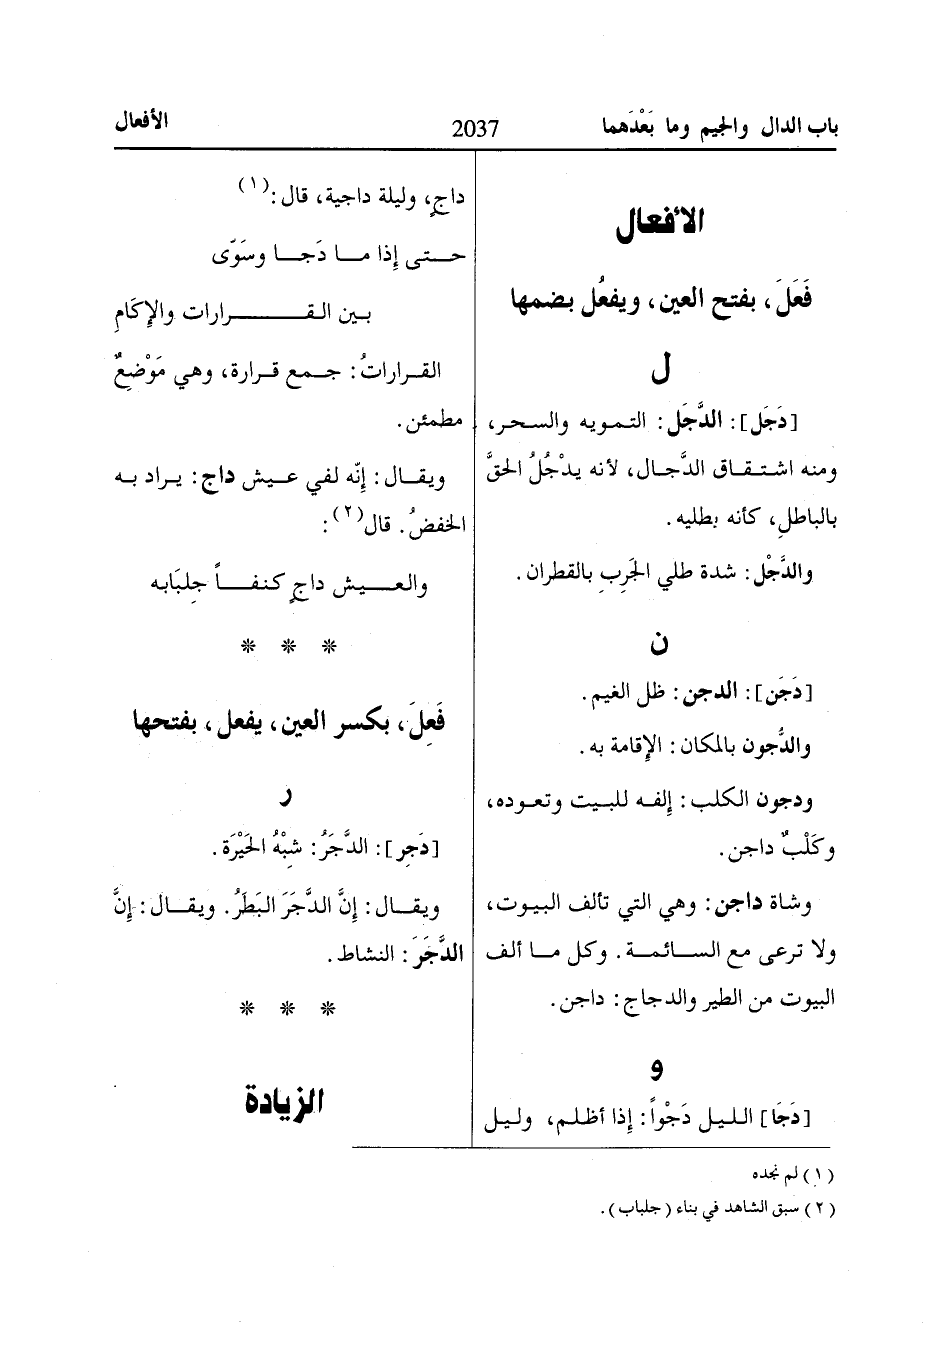 باب الدال والجيم وما بَعْدَهما
2037
الأفعال
الأفعال
فَعَلَ، بفتح العين، ويفعُل بضمها
ل
[دَجَل]: الدَّجَل: التمويه والسحر،
ومنه اشتقاق الدَّجال، لأنه يدْجُلُ الحقَّ
بالباطلِ، كأنه يطليه.
والدَّجْل: شدة طلي الجَرِبِ بالقطران.
ن
[دَجَن]: الدجن: ظل الغيم.
والدُّجون بالمكان: الإقامة به.
ودجون الكلب: إلفه للبيت وتعوده،
وكَلْبٌ داجن.
وشاة داجن: وهي التي تألف البيوت،
ولا ترعى مع السائمة. وكل ما ألف
البيوت من الطير والدجاج: داجن.
و
[دَجَا] الليل دَجْواً: إذا أظلم، وليل
داجٍ، وليلة داجية، قال:(١)
حتى إذا ما دَجا وسَوّى
بين القرارات والإكَامِ
القراراتُ: جمع قرارة، وهي مَوْضِعٌ
مطمئن.
ويقال: إنّه لفي عيش داج: يراد به
الخفضُ. قال(٢):
والعيش داجٍ كنفاً جلبَابه
* * *
فَعِلَ، بكسر العين، يفعل، بفتحها
ر
[دَجِر]: الدَّجَرُ: شبْهُ الحَيْرَة.
ويقال: إنَّ الدَّجَرَ البَطَرُ. ويقال: إنَّ
الدَّجَرَ: النشاط.
* * *
الزيادة
(١) لم نجده
(٢) سبق الشاهد في بناء (جلباب).